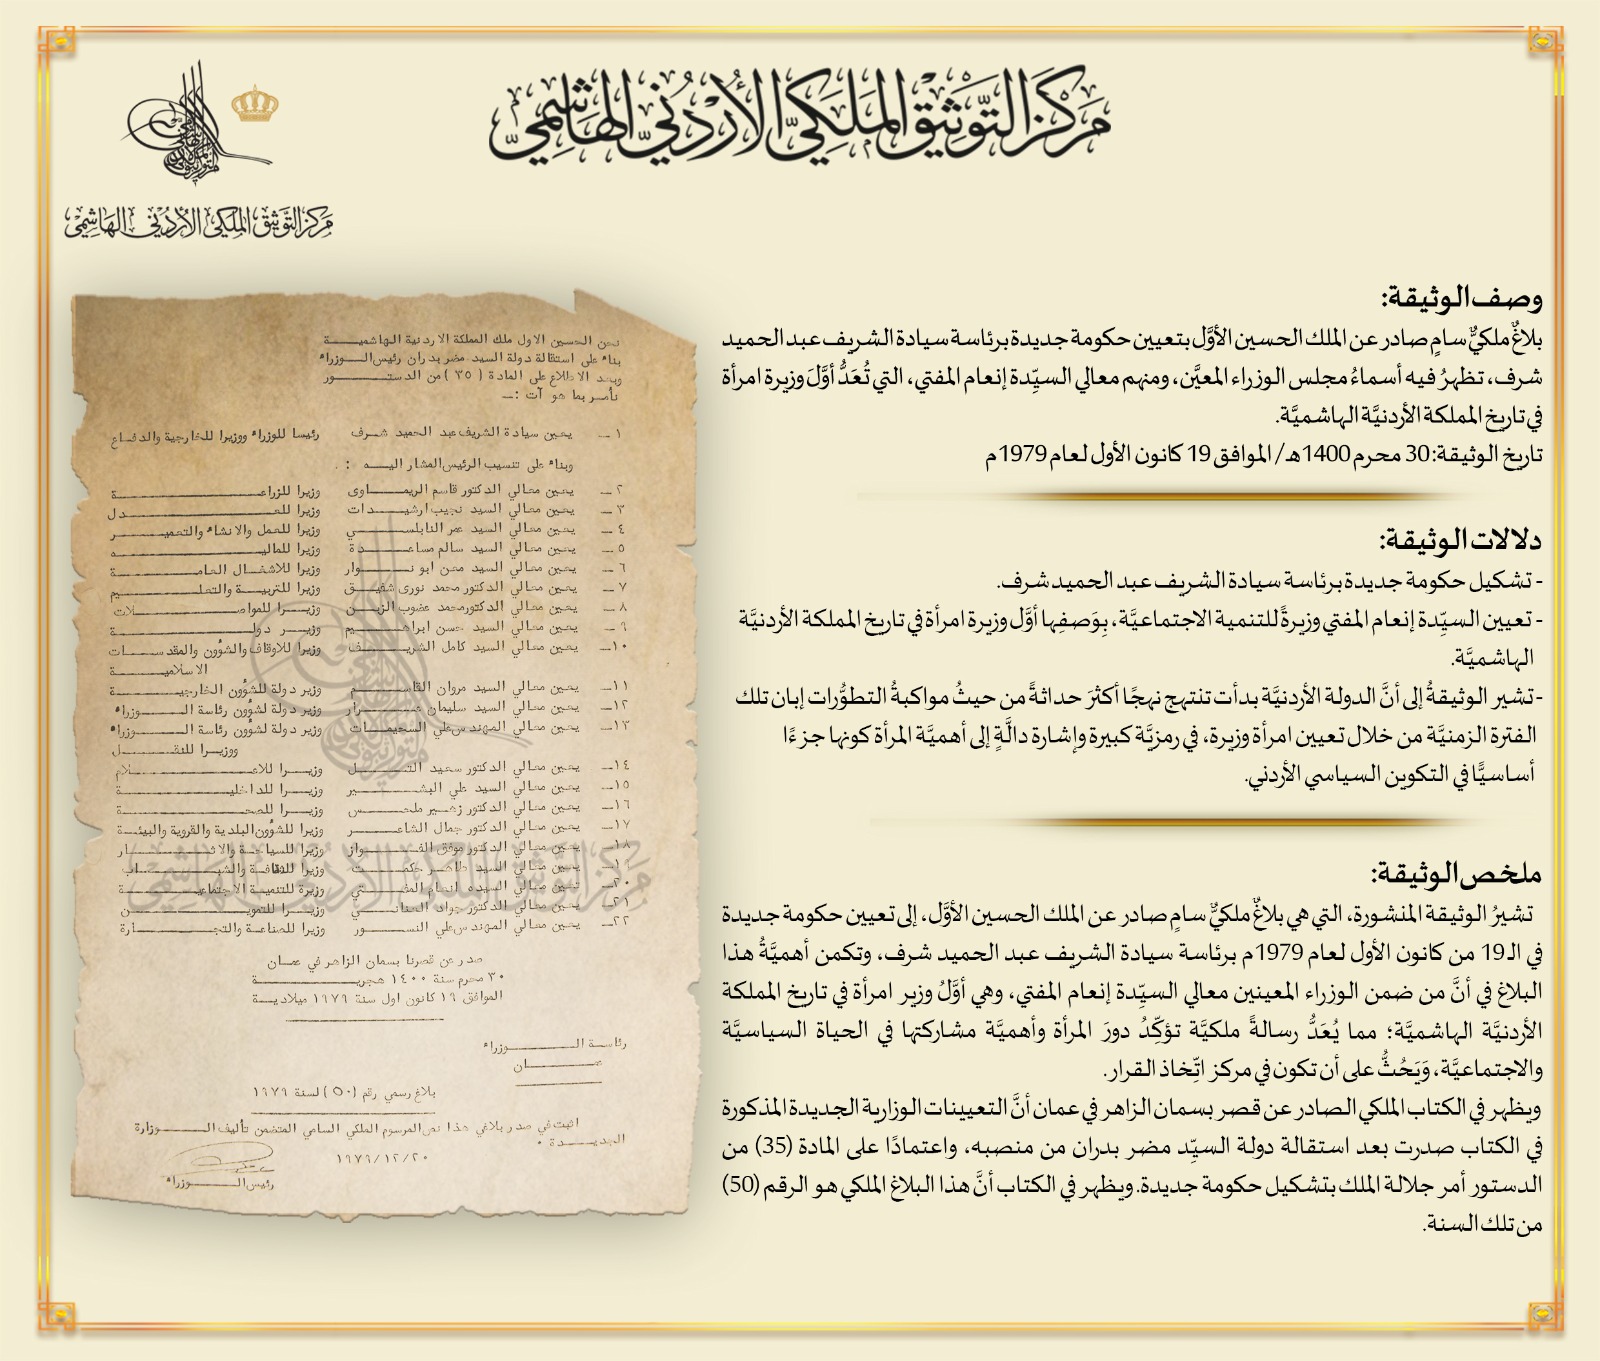 مركز التوثيق الملكي الأردني الهاشمي
مركز التوثيق الملكي الأردني الهاشمي
وصف الوثيقة:
بلاغٌ ملكيٌّ سامٍ صادر عن الملك الحسين الأوَّل بتعيين حكومة جديدة برئاسة سيادة الشريف عبد الحميد
شرف، تظهرُ فيه أسماءُ مجلس الوزراء المعيَّن، ومنهم معالي السيِّدة إنعام المفتي، التي تُعَدُّ أوَّلَ وزيرة امرأة
في تاريخ المملكة الأردنيَّة الهاشميَّة.
تاريخ الوثيقة: 30 محرم 1400هـ/ الموافق 19 كانون الأول لعام 1979م
دلالات الوثيقة:
- تشكيل حكومة جديدة برئاسة سيادة الشريف عبد الحميد شرف.
- تعيين السيِّدة إنعام المفتي وزيرةً للتنمية الاجتماعيَّة، بِوَصفِها أوَّل وزيرة امرأة في تاريخ المملكة الأردنيَّة
الهاشميَّة.
- تشير الوثيقةُ إلى أنَّ الدولة الأردنيَّة بدأت تنتهج نهجًا أكثرَ حداثةً من حيثُ مواكبةُ التطوُّرات إبان تلك
الفترة الزمنيَّة من خلال تعيين امرأة وزيرة، في رمزيَّة كبيرة وإشارة دالَّةٍ إلى أهميَّة المرأة كونها جزءًا
أساسيًّا في التكوين السياسي الأردني.
ملخص الوثيقة:
تشيرُ الوثيقة المنشورة، التي هي بلاغٌ ملكيٌّ سامٍ صادر عن الملك الحسين الأوَّل، إلى تعيين حكومة جديدة
في الـ19 من كانون الأول لعام 1979م برئاسة سيادة الشريف عبد الحميد شرف، وتكمن أهميَّةُ هذا
البلاغ في أنَّ من ضمن الوزراء المعينين معالي السيِّدة إنعام المفتي، وهي أوَّلُ وزير امرأة في تاريخ المملكة
الأردنيَّة الهاشميَّة؛ مما يُعَدُّ رسالةً ملكيَّة تؤكِّدُ دورَ المرأة وأهميَّة مشاركتها في الحياة السياسيَّة
والاجتماعيَّة، وَيَحُثُّ على أن تكون في مركز اتِّخاذ القرار.
ويظهر في الكتاب الملكي الصادر عن قصر بسمان الزاهر في عمان أنَّ التعيينات الوزارية الجديدة المذكورة
في الكتاب صدرت بعد استقالة دولة السيِّد مضر بدران من منصبه، واعتمادًا على المادة (35) من
الدستور أمر جلالة الملك بتشكيل حكومة جديدة. ويظهر في الكتاب أنَّ هذا البلاغ الملكي هو الرقم (50)
من تلك السنة.
نحن الحسين الاول ملك المملكة الاردنية الهاشميـــة
بناء على استقالة دولة السيد مضر بدران رئيس الـــوزراء
وبعد الاطلاع على المادة ( ٣٥ ) من الدستـــور
نأمر بما هو آت :ــ
١ ــ يعين سيادة الشريف عبد الحميد شرف رئيسا للوزراء ووزيرا للخارجية والدفاع
وبناء على تنسيب الرئيس المشار اليـــه :
٢ ــ يعين معالي الدكتور قاسم الريمـــاوى وزيرا للزراعـــة
٣ ــ يعين معالي السيد نجيب ارشيـــدات وزيرا للعـــدل
٤ ــ يعين معالي السيد عمر النابلســـي وزيرا للعمل والانشاء والتعميـــر
٥ ــ يعين معالي السيد سالم مساعـــدة وزيرا للماليـــه
٦ ــ يعين معالي السيد معن ابو نـــوار وزيرا للاشغـــال العامـــة
٧ ــ يعين معالي الدكتور محمد نورى شفيـــق وزيرا للتربيـــة والتعلـــيم
٨ ــ يعين معالي الدكتور محمد عضوب الزبـــن وزيـــرا للمواصـــلات
٩ ــ يعين معالي السيد حسن ابراهـــيم وزيـــر دولـــة
١٠ــ يعين معالي السيد كامل الشريـــف وزيرا للاوقاف والشؤون والمقدســـات
الاسلاميـــة
١١ــ يعين معالي السيد مروان القاســـم وزير دولة للشؤون الخارجيـــة
١٢ــ يعين معالي السيد سليمان عـــرار وزير دولة لشؤون رئاسة الـــوزراء
١٣ــ يعين معالي المهندس علي السحيمـــات وزير دولة لشؤون رئاسة الـــوزراء
ووزيـــرا للنقـــل
١٤ــ يعين معالي الدكتور سعيد التـــل وزيـــرا للاعـــلام
١٥ــ يعين معالي السيد علي البشـــير وزيـــرا للداخليـــة
١٦ــ يعين معالي الدكتور زهير ملحـــس وزيـــرا للصحـــة
١٧ــ يعين معالي الدكتور جمال الشاعـــر وزيرا للشؤون البلدية والقروية والبيئـــة
١٨ــ يعين معالي الدكتور موفق الفـــواز وزيرا للسياحـــة والاثـــار
١٩ــ يعين معالي السيد طاهر حكمـــت وزيرا للثقافـــة والشبـــاب
٢٠ــ تعين معالي السيده انعام المفـــتي وزيرة للتنميـــة الاجتماعيـــة
٢١ــ يعين معالي الدكتور جواد العنانـــي وزيـــرا للتمويـــن
٢٢ــ يعين معالي المهندس علي النســـور وزيرا للصناعة والتجـــارة
صدر عن قصرنا بسمان الزاهر في عمـــان
٣٠ محرم سنة ١٤٠٠ هجريـــة
الموافق ١٩ كانون اول سنة ١٩٧٩ ميلاديـــة
رئاسة الـــوزراء
عمـــان
بلاغ رسمي رقم (٥٠) لسنة ١٩٧٩
اثبت في صدر بلاغي هذا نص المرسوم الملكي السامي المتضمن تأليف الـــوزارة
الجديـــدة ٠
١٩٧٩/١٢/٢٠
رئيس الـــوزراء